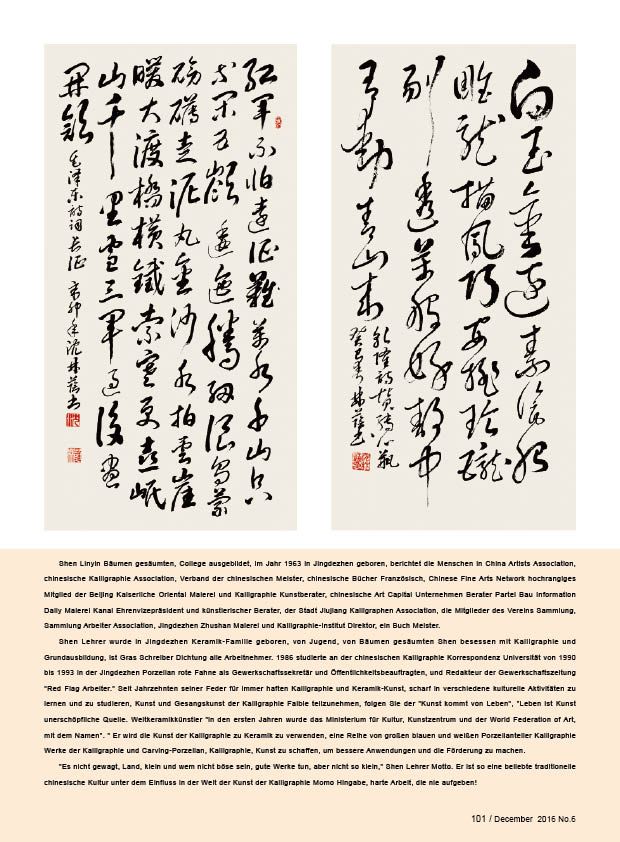 红軍不怕遠征難萬水千山只
等闲五嶺逶迤騰細浪烏蒙
磅礴走泥丸金沙水拍雲崖
暖大渡橋横鐵索寒更喜岷
山千里雪三軍過後盡
開顏
毛泽东诗词長征 辛卯年沈林蔭书
白玉金邊素瓷胎
雕龍描鳳巧安排玲瓏
剔透萬般好靜中
有動青山来
乾隆詩
癸巳年林蔭书
Shen Linyin Bäumen gesäumten, College ausgebildet, im Jahr 1963 in Jingdezhen geboren, berichtet die Menschen in China Artists Association,
chinesische Kalligraphie Association, Verband der chinesischen Meister, chinesische Bücher Französisch, Chinese Fine Arts Network hochrangiges
Mitglied der Beijing Kaiserliche Oriental Malerei und Kalligraphie Kunstberater, chinesische Art Capital Unternehmen Berater Partei Bau Information
Daily Malerei Kanal Ehrenvizepräsident und künstlerischer Berater, der Stadt Jiujiang Kalligraphen Association, die Mitglieder des Vereins Sammlung,
Sammlung Arbeiter Association, Jingdezhen Zhushan Malerei und Kalligraphie-Institut Direktor, ein Buch Meister.
Shen Lehrer wurde in Jingdezhen Keramik-Familie geboren, von Jugend, von Bäumen gesäumten Shen besessen mit Kalligraphie und
Grundausbildung, ist Gras Schreiber Dichtung alle Arbeitnehmer. 1986 studierte an der chinesischen Kalligraphie Korrespondenz Universität von 1990
bis 1993 in der Jingdezhen Porzellan rote Fahne als Gewerkschaftssekretär und Öffentlichkeitsbeauftragten, und Redakteur der Gewerkschaftszeitung
"Red Flag Arbeiter." Seit Jahrzehnten seiner Feder für immer haften Kalligraphie und Keramik-Kunst, scharf in verschiedene kulturelle Aktivitäten zu
lernen und zu studieren, Kunst und Gesangskunst der Kalligraphie Faible teilzunehmen, folgen Sie der "Kunst kommt von Leben", "Leben ist Kunst
unerschöpfliche Quelle. Weltkeramikkünstler "in den ersten Jahren wurde das Ministerium für Kultur, Kunstzentrum und der World Federation of Art,
mit dem Namen". " Er wird die Kunst der Kalligraphie zu Keramik zu verwenden, eine Reihe von großen blauen und weißen Porzellanteller Kalligraphie
Werke der Kalligraphie und Carving-Porzellan, Kalligraphie, Kunst zu schaffen, um bessere Anwendungen und die Förderung zu machen.
"Es nicht gewagt, Land, klein und wem nicht böse sein, gute Werke tun, aber nicht so klein," Shen Lehrer Motto. Er ist so eine beliebte traditionelle
chinesische Kultur unter dem Einfluss in der Welt der Kunst der Kalligraphie Momo Hingabe, harte Arbeit, die nie aufgeben!
101 / December 2016 No.6